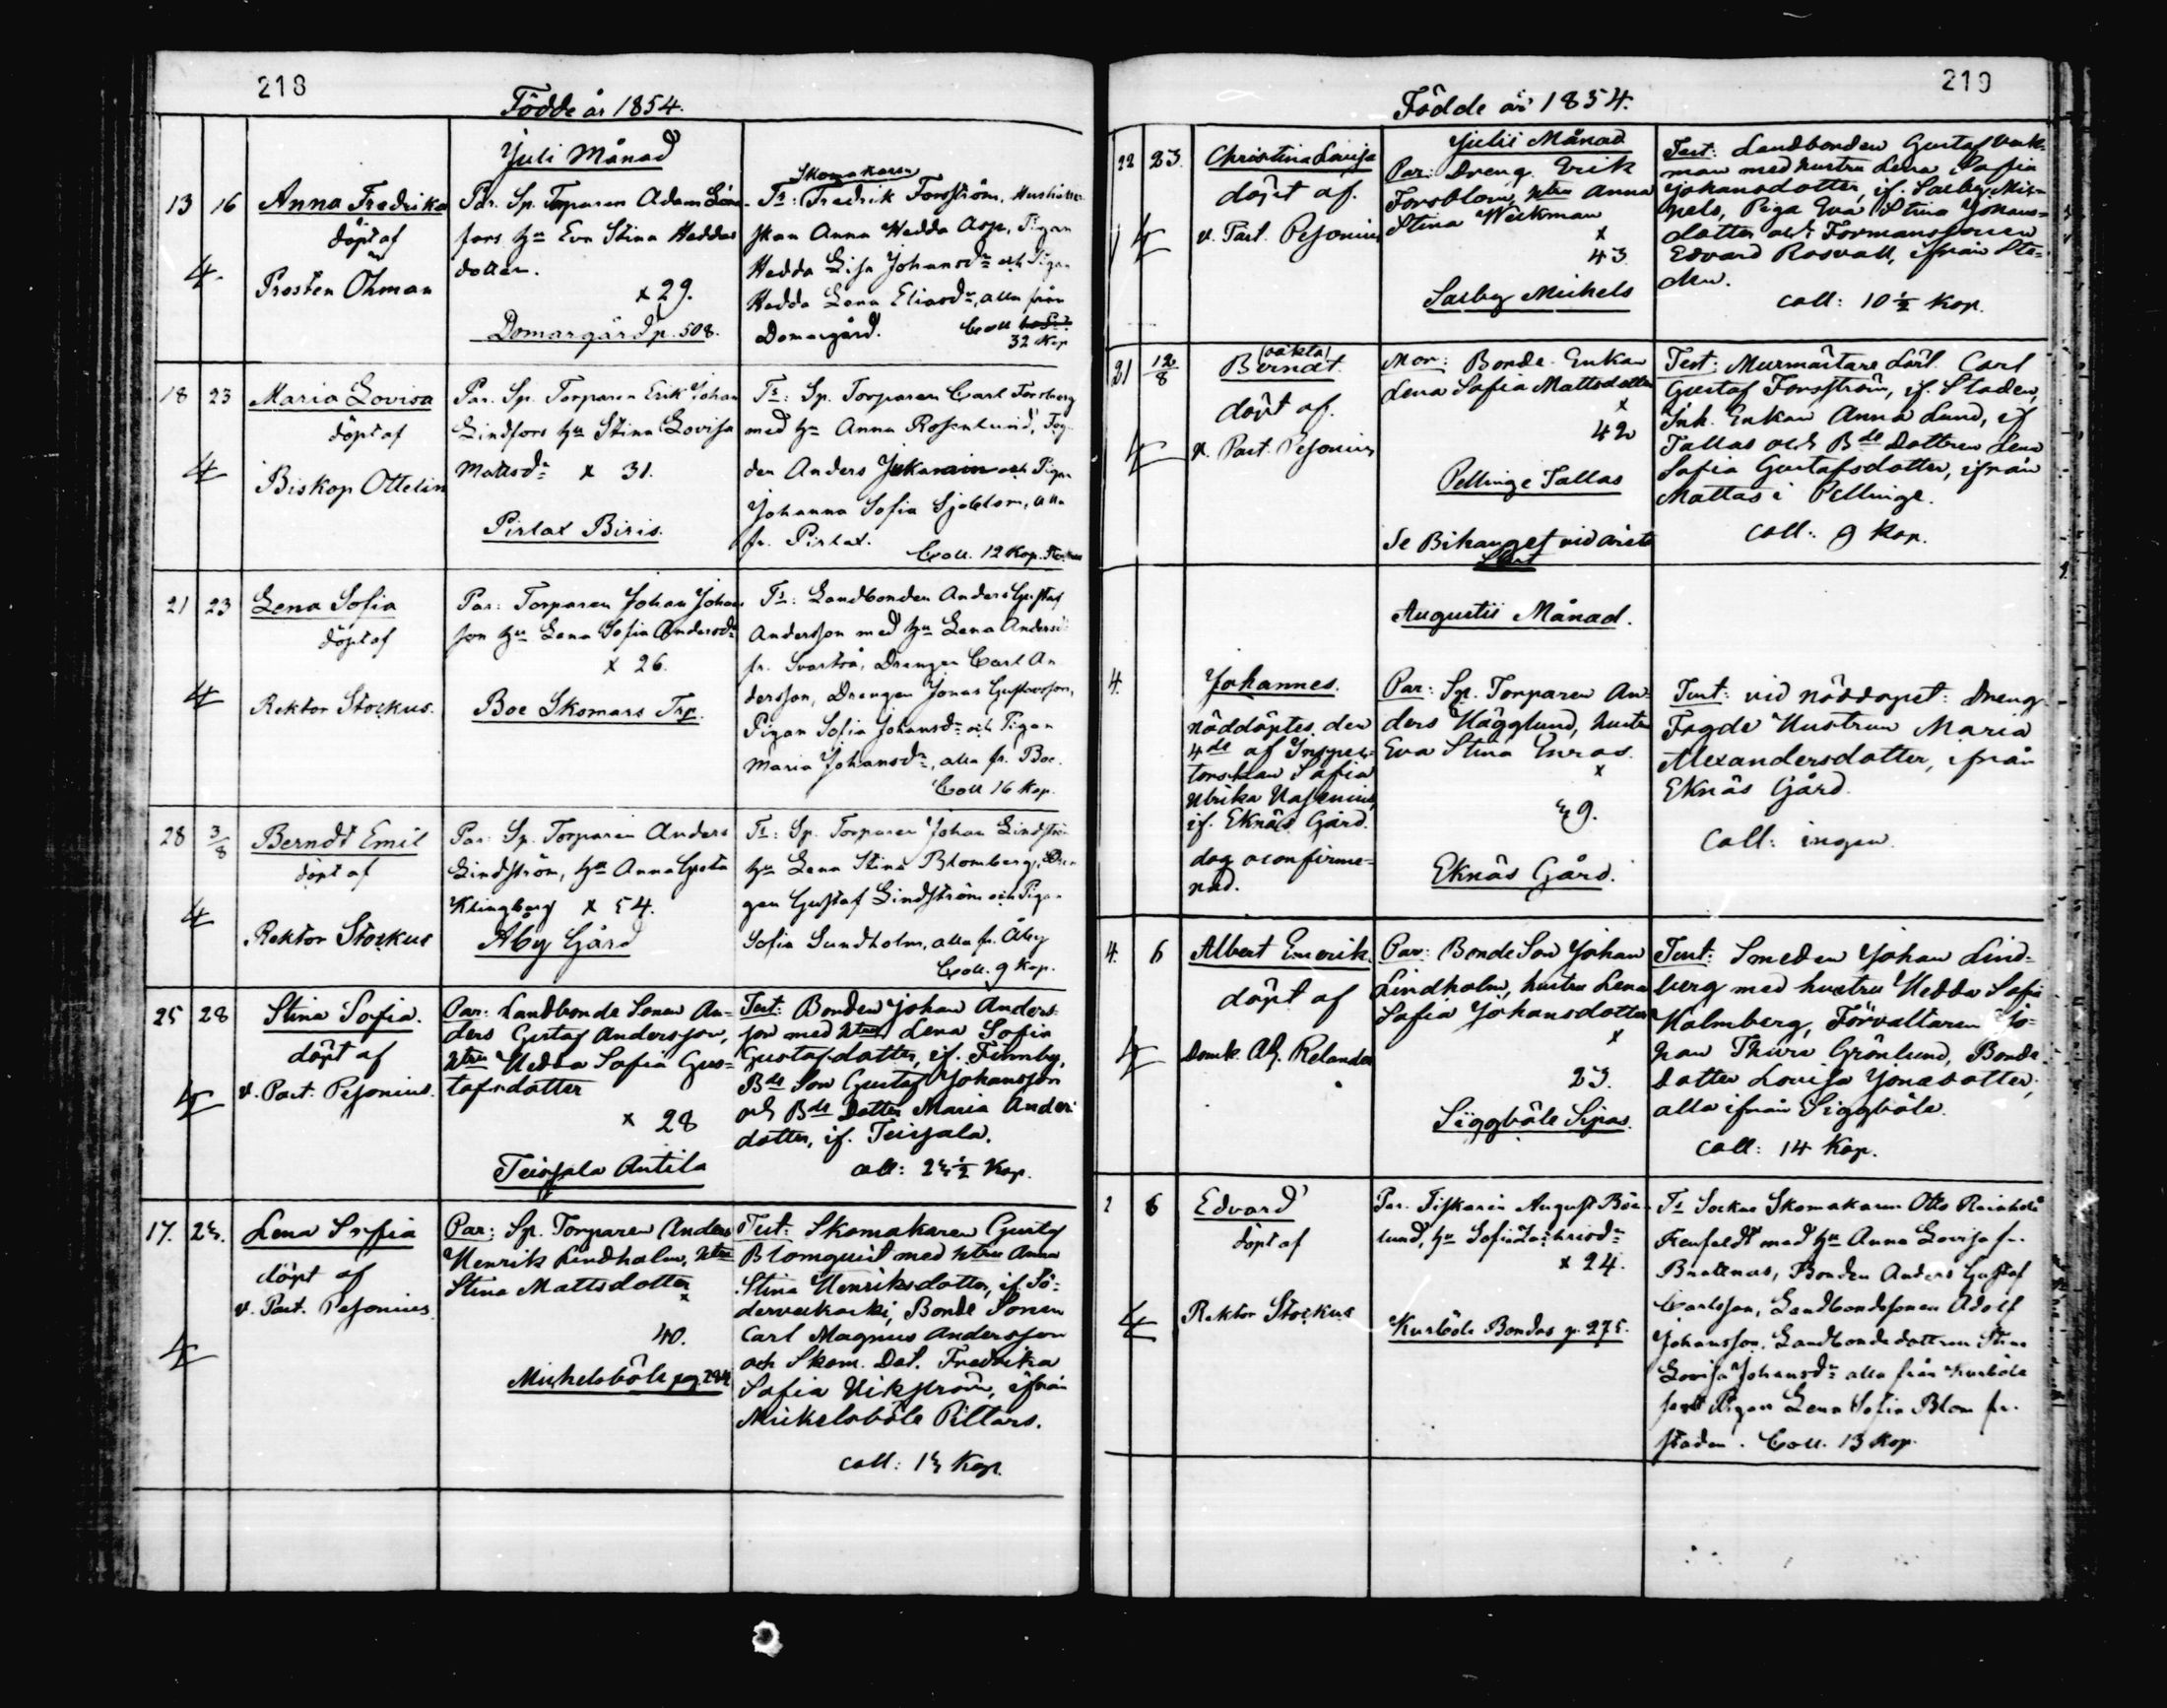 218
Födde år 1854.
Juli Månad
13 16 Anna Fredrika
döpt af
Prosten Öhman
Par. Sp. Torparen Adam Lind-
fors hu Eva Stina Heddas
dotter.
x 29.
Domargård p. 508.
Skomakaren
Ts: Fredrik Forsström, Hushåller-
skan Anna Hedda Asp, Pigan
Hedda Lisa Johansdr och Pigan
Hedda Lena Eliasdr, alla från
Domargård. Coll
32 Kop
18 23 Maria Lovisa
döpt af
Biskop Ottelin
Par. Sp. Torparen Erik Johan
Lindfors hu Stina Lovisa
Mattsdr x 31.
Pirlax Biris.
Ts: Sp. Torparen Carl Forsberg
med hu Anna Rosenlund, Fog-
den Anders Jukarain och Pigan
Johanna Sofia Sjöblom, alla
fr. Pirlax.
Coll. 12 Kop.
21 23 Lena Sofia
döpt af
Rektor Stockus.
Par: Torparen Johan Johans
son hu Lena Sofia Andersdr
x 26.
Boe Skomars Trp.
Ts: Landbonden Anders Gustaf
Andersson med hu Lena Andersd
fr. Svartså, Drengen Carl An
dersson, Drengen Jonas Gustavsson,
Pigan Sofia Johansdr och Pigan
Maria Johansdr, alla fr. Boe.
Coll 16 Kop.
28 3/8 Berndt Emil
döpt af
Rektor Stockus
Par: Sp. Torparen Anders
Lindström, hu Anna Greta
Klingberg x 54.
Åby Gård
Ts: Sp. Torparen Johan Lindström
hu Lena Stina Blomberg, Dren
gen Gustaf Lindström och Pigan
Sofia Sundholm, alla fr. Åby
Coll. 9 Kop.
25 28 Stina Sofia.
döpt af
v. Past. Pesonius.
Par: Landbonde Sonen An-
ders Gustaf Andersson,
Htru Hedda Sofia Gus-
tafsdotter
x 28
Teissala Antila
Test: Bonden Johan Anders-
son med htru Lena Sofia
Gustafsdotter, if. Finnby,
Bde Son Gustaf Johansson
och Bde Dotter Maria Anders
dotter, if. Teissala.
coll: 25 1/2 Kop.
17. 25. Lena Sofia
döpt af
v. Past. Pesonius
Par: Sp. Torparen Anders
Henrik Lindholm, htru
Stina Mattsdotter
x
40.
Michelsböle pag. 284
Test: Skomakaren Gustaf
Blomquist med htru Anna
Stina Henriksdotter, if. Sö-
derveckoski, Bonde Sonen
Carl Magnus Andersson
och Skom. Dot. Fredrika
Sofia Vikström, ifrån
Mickelsböle Pillars.
coll: 15 Kop.
219
Födde år 1854.
Julii Månad
22 23. Christina Lovisa
döpt af.
v. Past. Pesonius
Par: Dreng. Erik
Forsblom, htru Anna
Stina Wickman
x
43
Sarby Michels
Test: Landbonden Gustaf Wick-
man med hustru Lena Sofia
Johansdotter, if. Sarby Mic-
hels, Piga Eva Stina Johans-
dotter och Formanssonen
Edvard Rosvall, ifrån Sta-
den.
coll: 10 1/2 Kop.
21 12/8 (oäkta)
Berndt.
döpt af.
v. Past. Pesonius
Mor: Bonde Enkan
Lena Sofia Mattsdotter
x
42
Pellinge Tallas
Se Bihanget vid årets
Slut
Test: Murmästare Lärl. Carl
Gustaf Forsström, if. Staden,
Inh. Enkan Anna Lund, if
Tallas och Bde Dottren Lena
Sofia Gustafsdotter, ifrån
Mattas i Pellinge.
coll: 9 Kop.
Augustii Månad.
4. Johannes.
nöddöptes den
4de af Inspec-
torskan Sofia
Ulrika
if. Eknäs Gård.
dog oconfirme-
rad.
Par: Sp. Torparen An-
ders Hägglund, hustru
Eva Stina Enros.
x
Eknäs Gård.
Test: vid nöddopet: Dreng
Fogde Hustrun Maria
Alexandersdotter, ifrån
Eknäs Gård.
Coll: ingen.
4. 6 Albert Emerik.
döpt af
Domk. Adj. Relander
Par: Bonde Son Johan
Lindholm, hustru Lena
Sofia Johansdotter
x
23.
Siggböle Sipas.
Test: Smeden Johan Lind-
berg med hustru Hedda Sofia
Holmberg, Förvaltaren Jo-
han Thure Grönlund, Bonde
dotter Lovisa Jonasdotter,
alla ifrån Siggböle.
Coll: 14 Kop.
2 6 Edvard
döpt af
Rektor Stockus
Par. Fiskaren August Björk-
lund, hu Sofia Zachrisdr
x 24.
Kurböle Bondas p. 275.
Ts Sockne Skomakaren Otto Reinhold
Frenfeldt med hu Anna Lovisa fr.
Brattnäs, Bonden Anders Gustaf
Carlsson, Landbondesonen Adolf
Johansson, Landbondedottren Stina
Lovisa Johansdr alla från Kurböle
samt Pigan Lena Sofia Blom fr.
staden. Coll. 13 Kop.